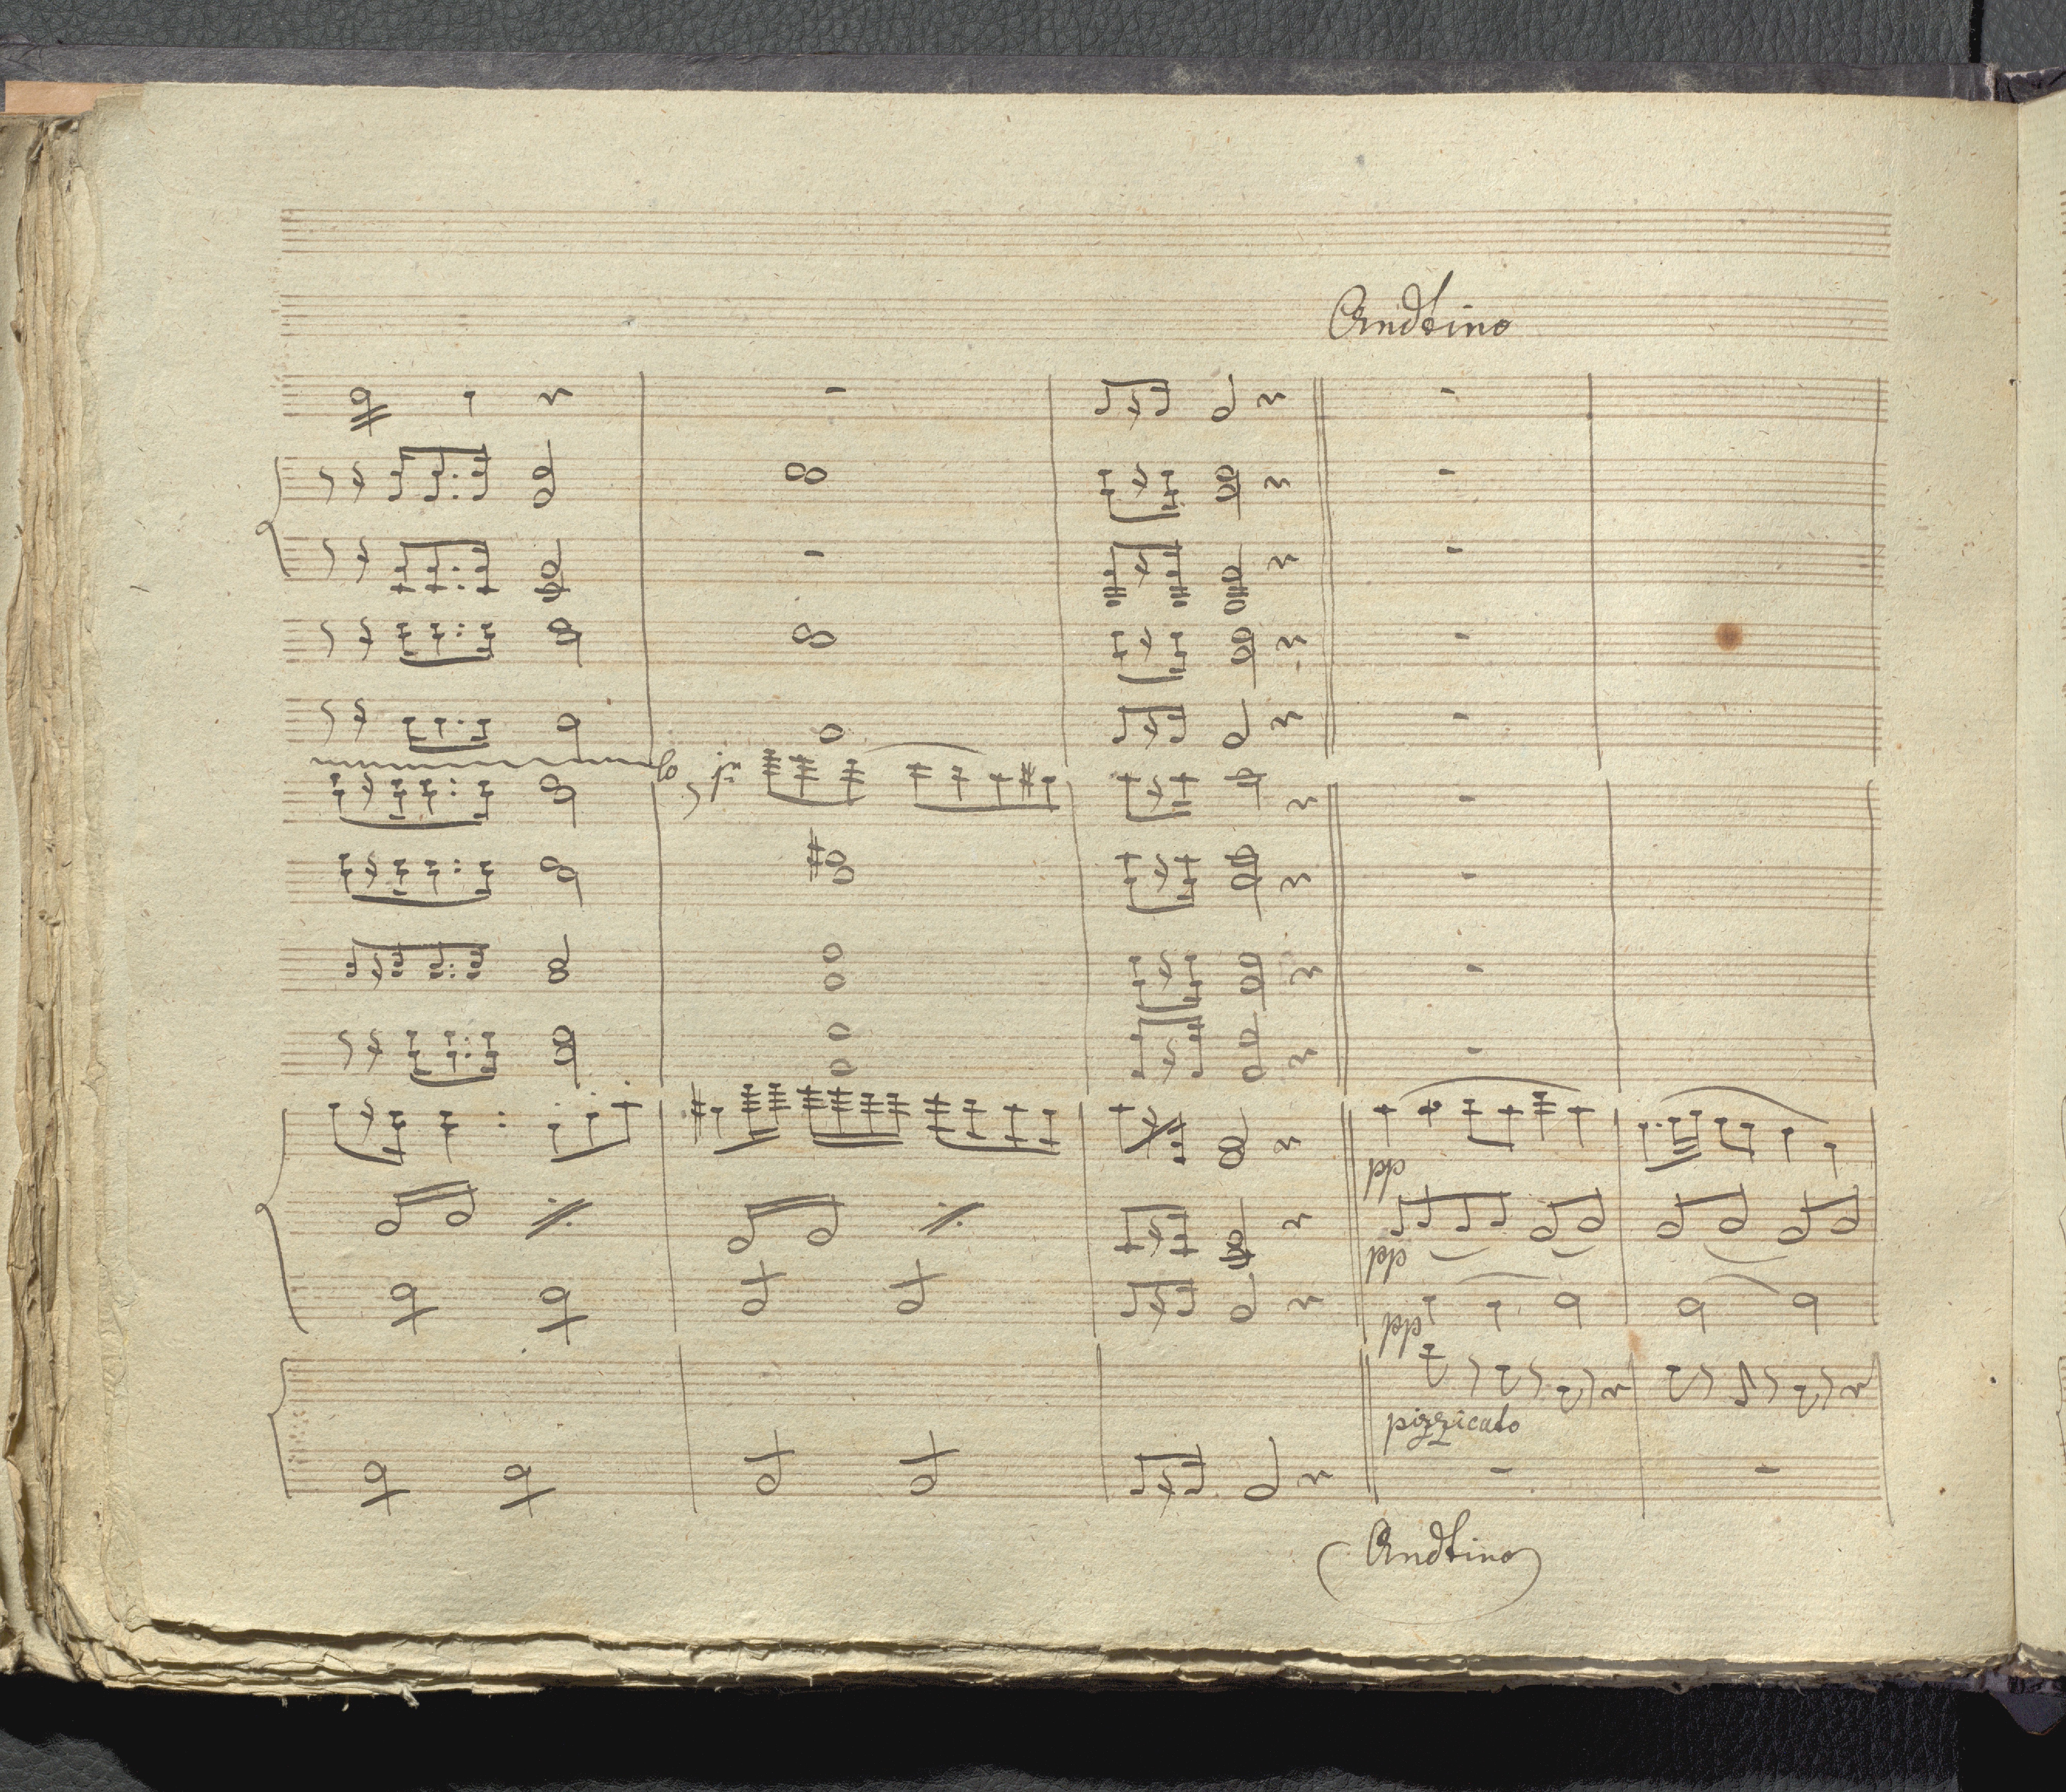 Andtino
pp
pp
pp
pizzicato
Andtino